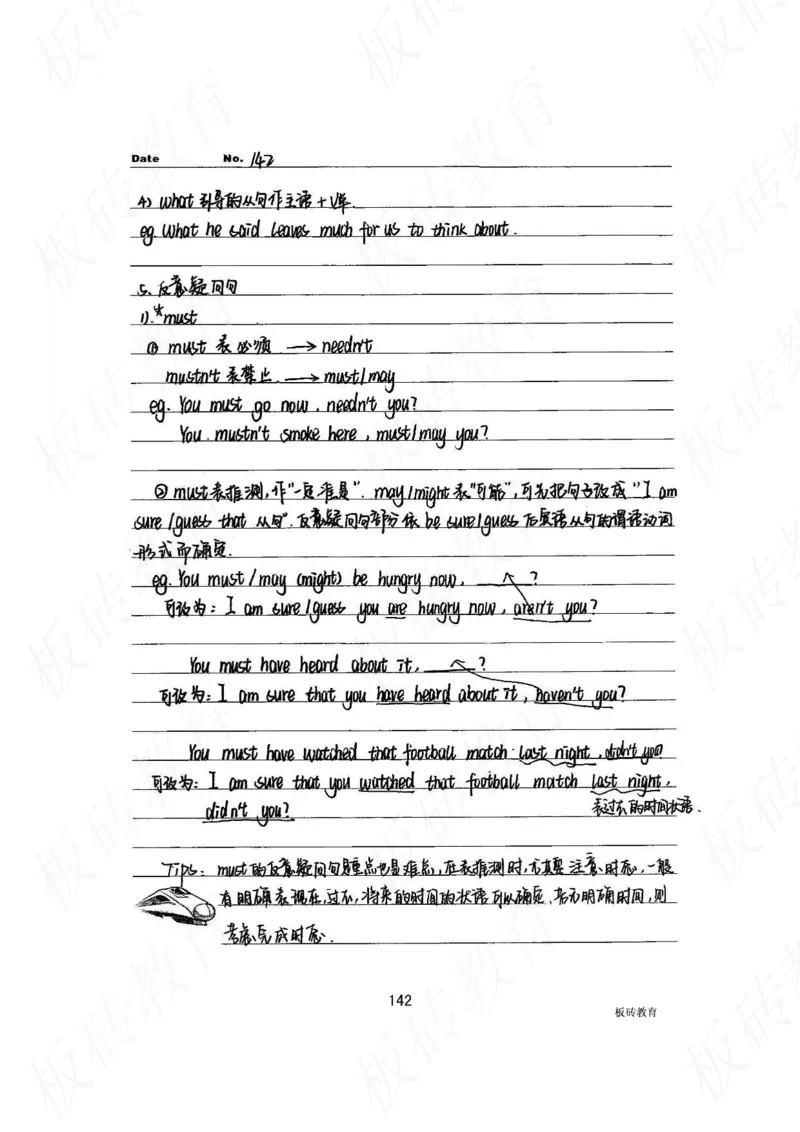 Date No. 142
4) What 引导的从句作主语 + V单.
eg. What he said leaves much for us to think about.
5、反意疑问句
1).*must
① must 表必须 → needn't
mustn't 表禁止. → must/may
eg. You must go now, needn't you?
You mustn't smoke here, must/may you?
② must表推测,作"一定准是". may/might 表"可能",可先把句子改成"I am
sure/guess that 从句".反意疑问句部分依 be sure/guess 后宾语从句的谓语动词
形式而确定.
eg. You must/may (might) be hungry now, ____?
可改为: I am sure/guess you are hungry now, aren't you?
You must have heard about it, ____?
可改为: I am sure that you have heard about it, haven't you?
You must have watched that football match last night, didn't you?
可改为: I am sure that you watched that football match last night,
didn't you? 表过去的时间状语.
Tips: must的反意疑问句是重点也是难点,在表推测时,尤其要注意时态,一般
有明确表现在,过去,将来的时间的状语可以确定、若无明确时间,则
考虑完成时态.
142
板砖教育